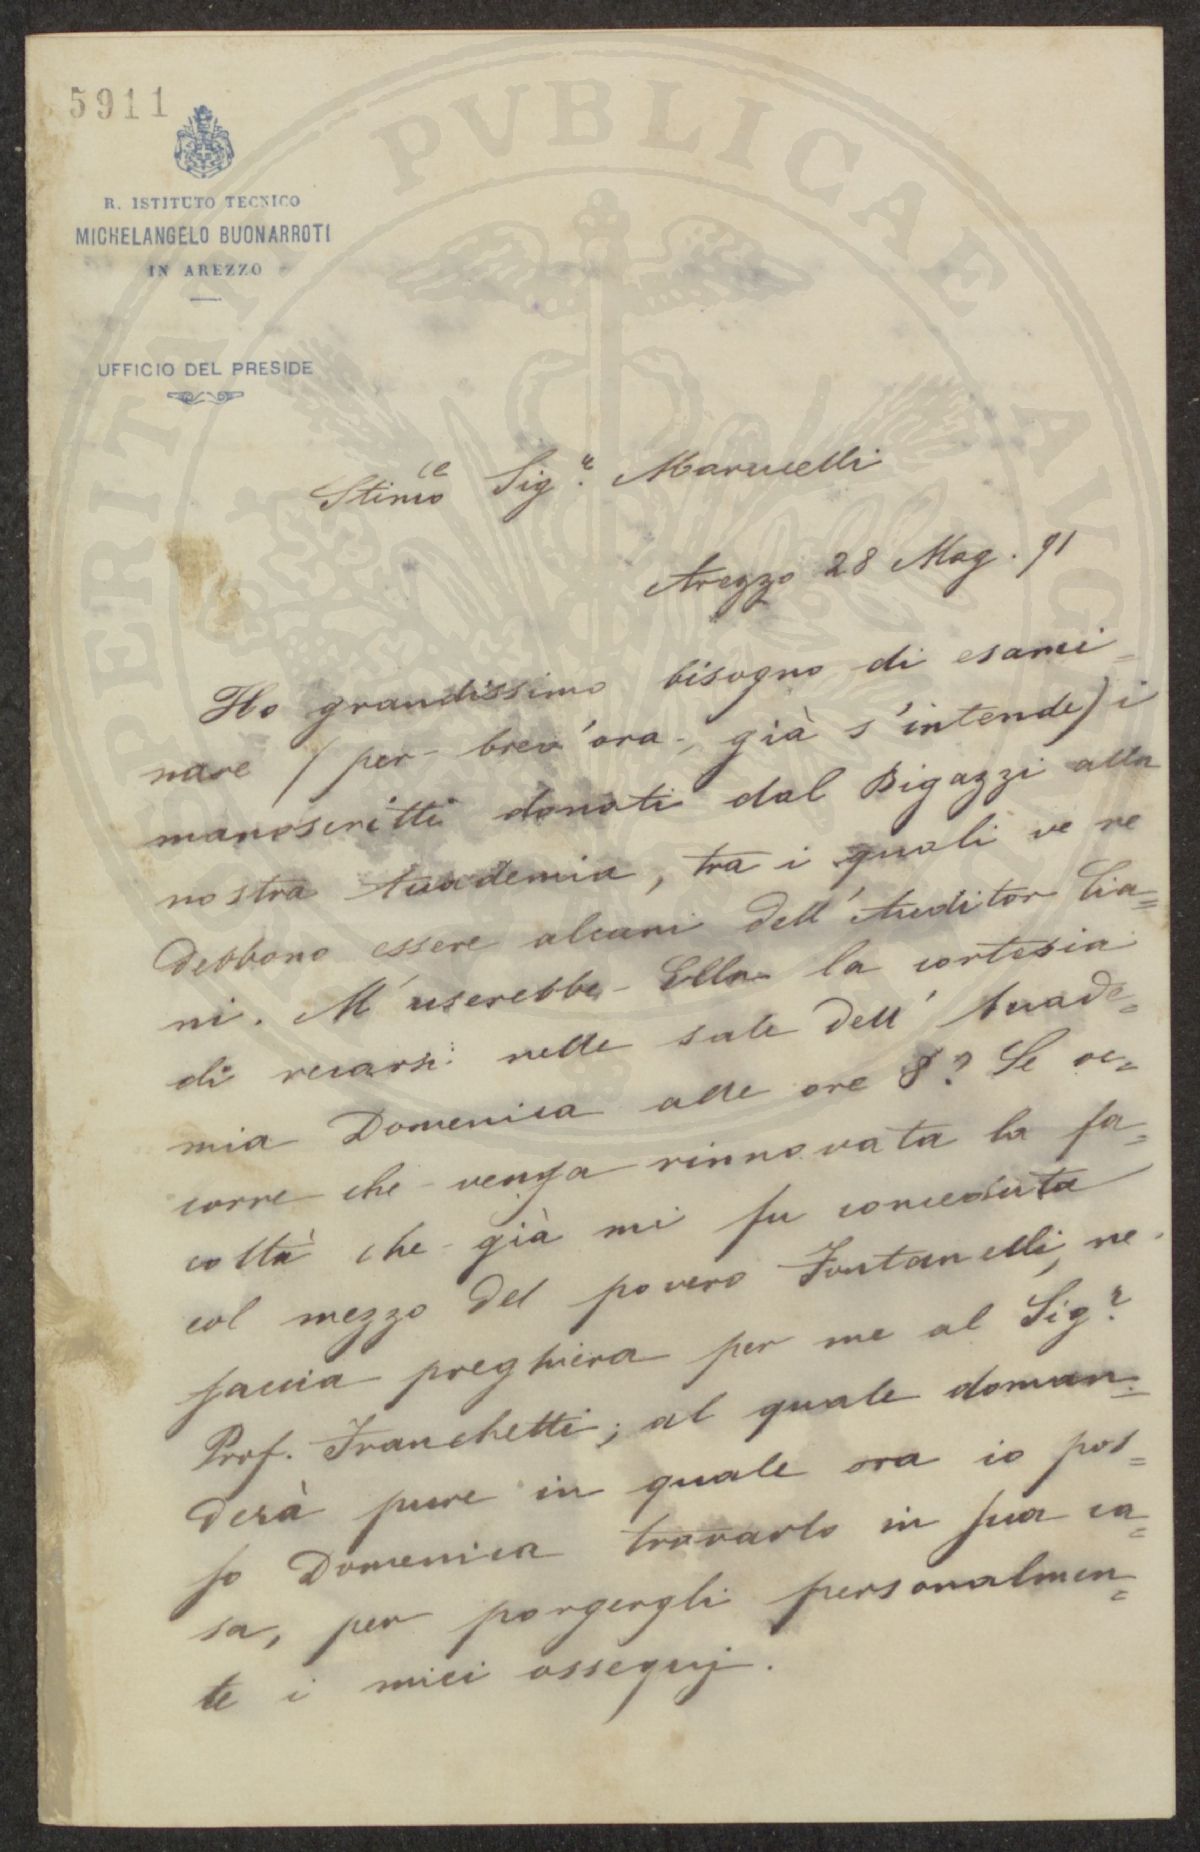 5911
R. ISTITUTO TECNICO
MICHELANGELO BUONARROTI
IN AREZZO
UFFICIO DEL PRESIDE
PROSPERITATI PVBLICAE AVGENDAE
Stimo Sig.r Marucelli
Arezzo 28 Mag. 91
Ho grandissimo bisogno di esami-
nare (per brev'ora, già s'intende) i
manoscritti donati dal Bigazzi alla
nostra Accademia, tra i quali ve ne
debbono essere alcuni dell'Auditor Cia=
ni. M'userebbe Ella la cortesia
di recarsi nelle sale dell'Accade=
mia Domenica alle ore 8? Se oc=
corre che venga rinnovata la fa=
coltà che già mi fu conceduta
col mezzo del povero Fontanelli, ne
faccia preghiera per me al Sig.r
Prof. Franchetti; al quale doman=
derà pure in quale ora io pos=
so Domenica trovarlo in sua ca=
sa, per porgergli personalmen=
te i miei ossequj.